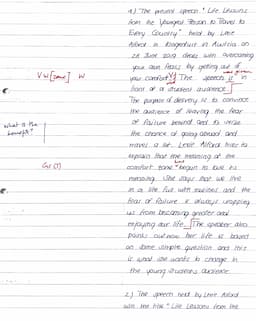 1.) The present speech "Life Lessons
from the Youngest Person to Travel to
Every Country" held by Lexie
Alford in Klagenfurt in Austria on
28 June 2019 deals with overcoming
your own fears by getting out of
your comfort The speech is
in front of a student audience.
The purpose of delivery is to convince
the audience of leaving the fear
of failure behind and to
the chance of going abroad and
travel a lot. Lexie Alford tries to
explain that the meaning of the
comfort zone began to lose its
meaning. She says that we live
in a life full with and the
fear of failure is always
us from becoming greater and
enjoying our life. The speaker also
points out how her life is based
on some simple question and this
is what she wants to change in
the young audience.
2.) The speech held by Lexie Alford
with the title "Life Lessons from the
VW [zone] W
what is the
benefit?
Gr (?)